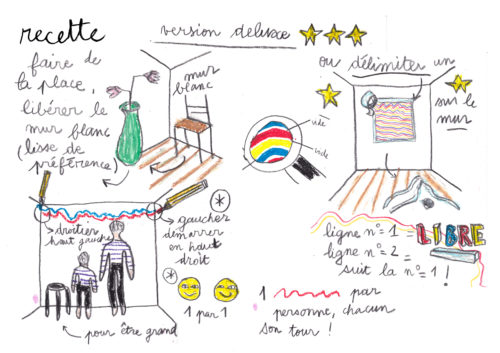 recette
version deluxe
faire de
la place,
libérer le
mur blanc
(lisse de
préférence)
mur
blanc
ou délimiter un
sur le
mur
vide
vide
droitier
haut gauche
gaucher
démarrer
en haut
droit
pour être grand
1 par 1
ligne n° 1 = LIBRE
ligne n° 2 =
suit la n° 1 !
1 par
personne, chacun
son tour !